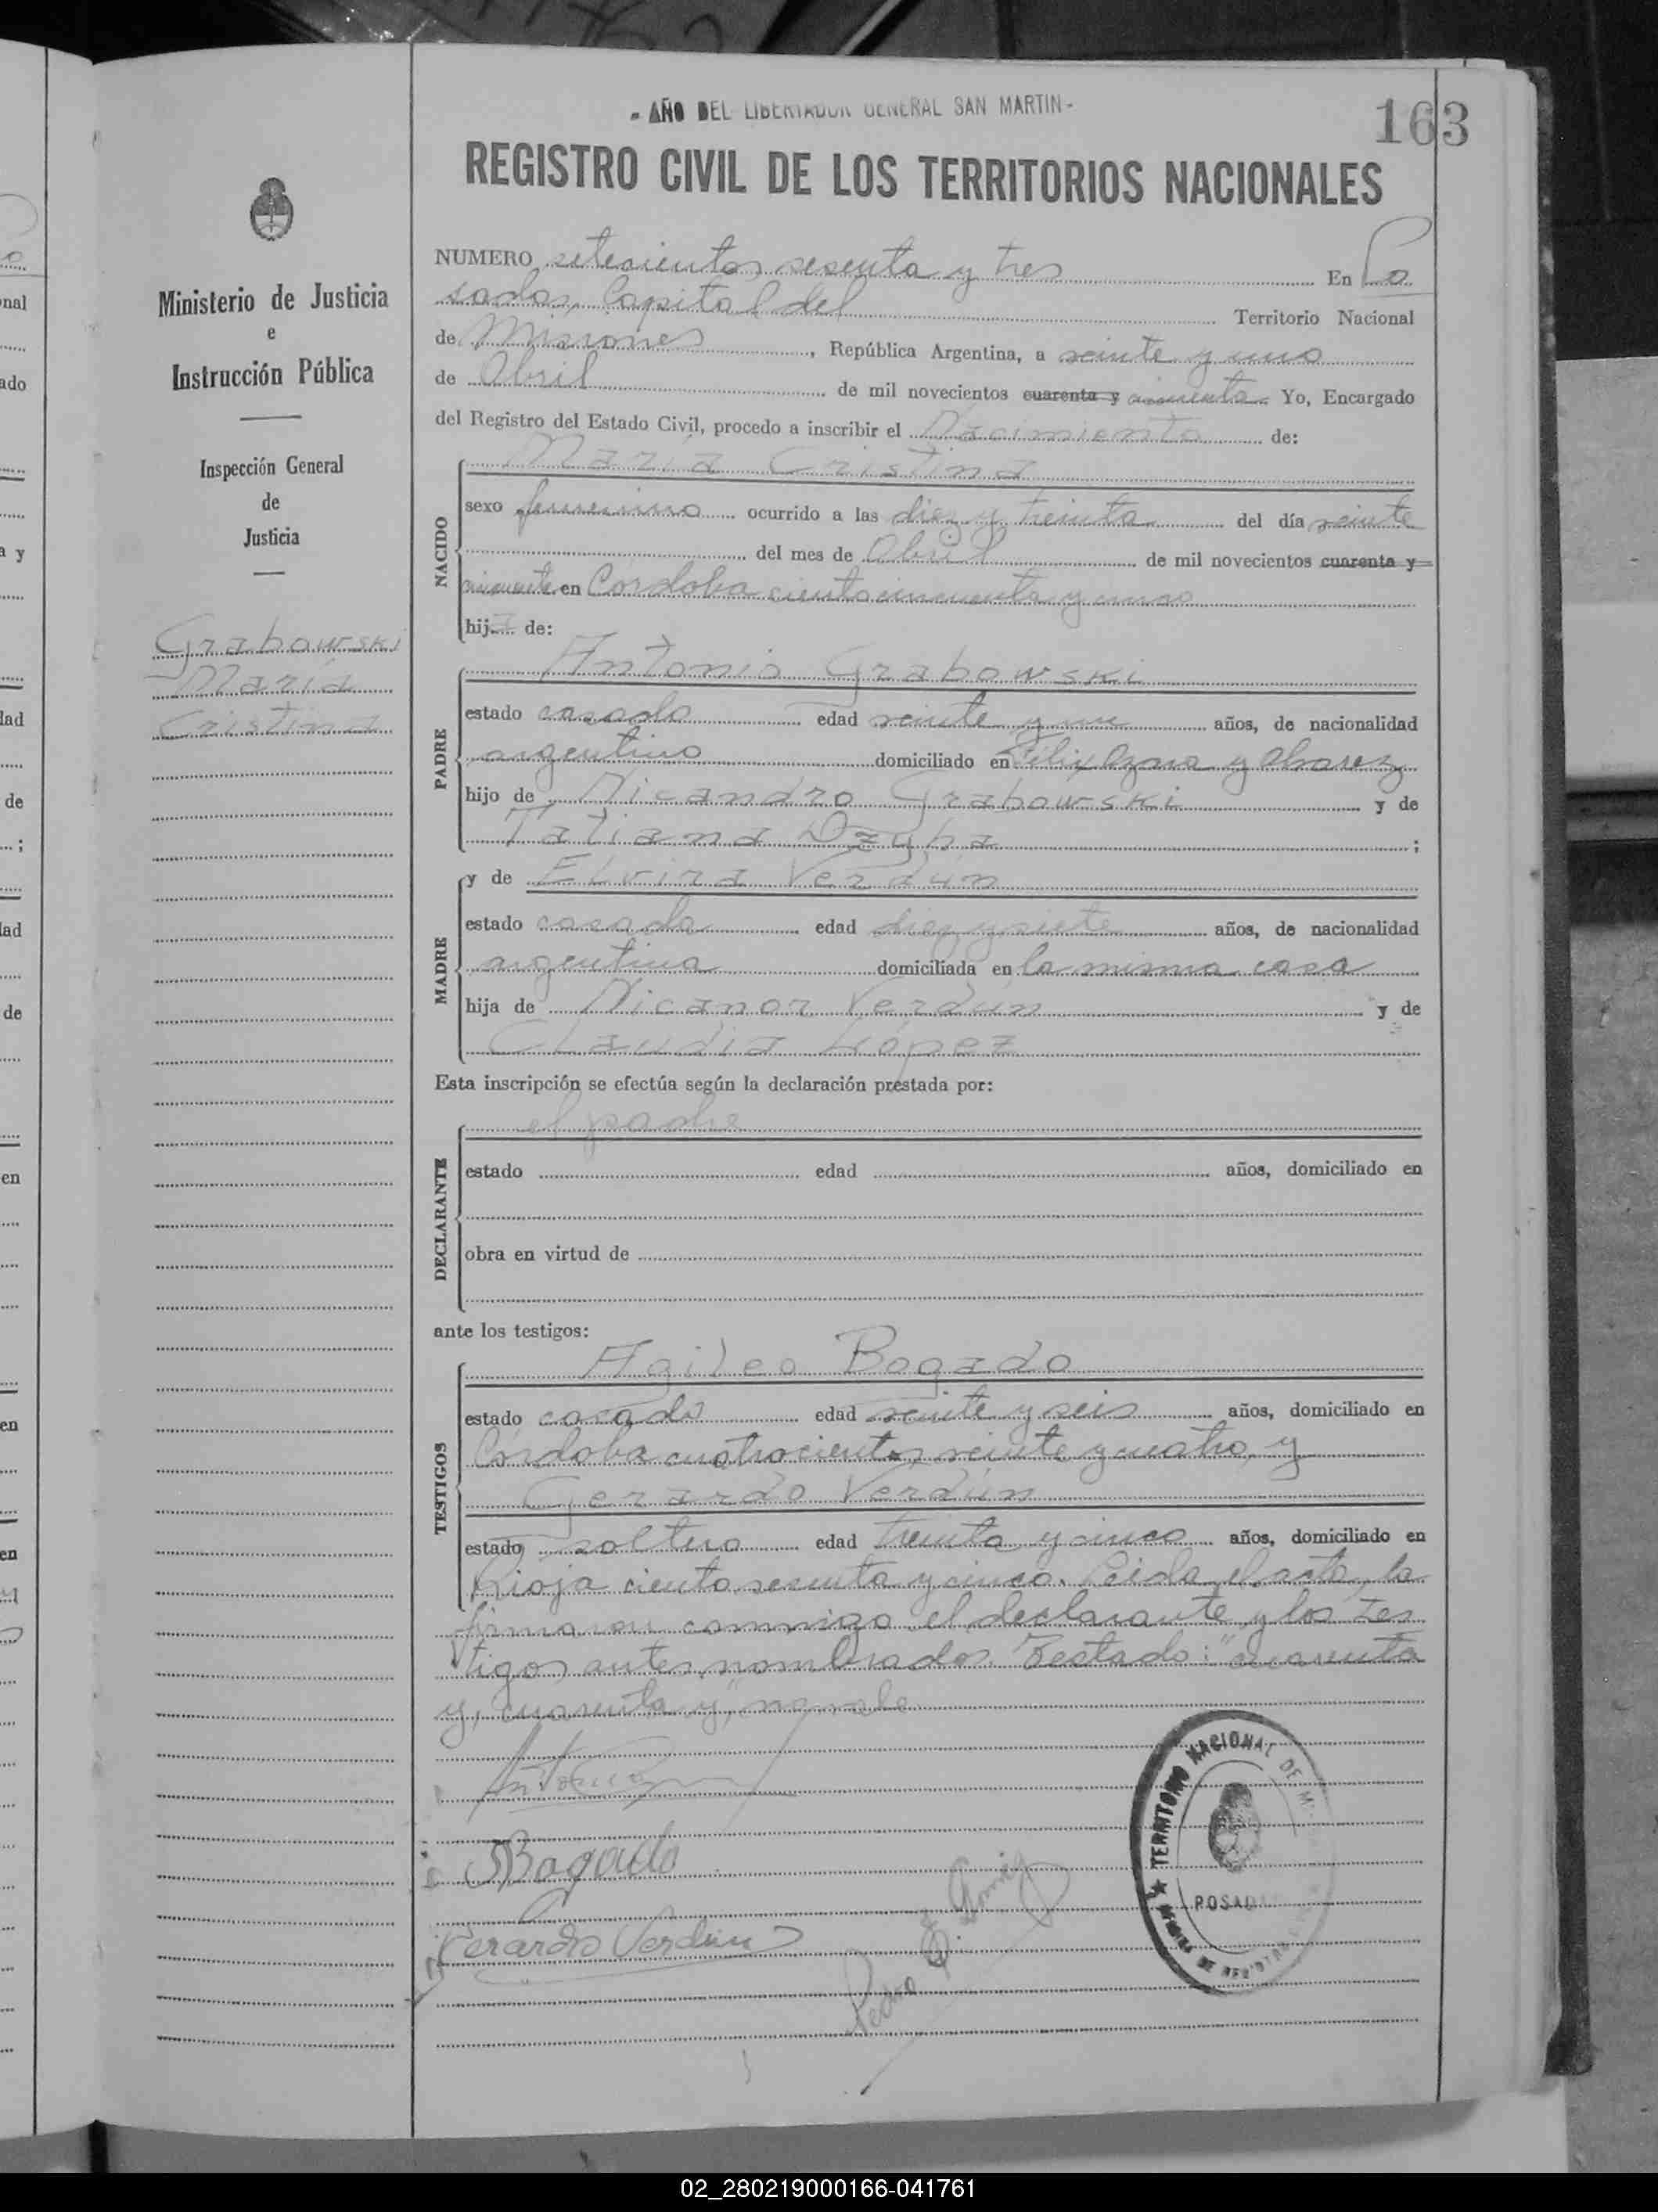 - AÑO DEL LIBERTADOR GENERAL SAN MARTIN -
163
REGISTRO CIVIL DE LOS TERRITORIOS NACIONALES
Ministerio de Justicia
e
Instrucción Pública
Inspección General
de
Justicia
Grabowski
María
Cristina
NUMERO setecientos sesenta y tres En Po
sadas, Capital del Territorio Nacional
de Misiones, República Argentina, a veinte y uno
de Abril de mil novecientos cuarenta y cincuenta Yo, Encargado
del Registro del Estado Civil, procedo a inscribir el Nacimiento de:
NACIDO
María Cristina
sexo femenino ocurrido a las diez y treinta del día veinte
del mes de Abril de mil novecientos cuarenta y
cincuenta en Córdoba ciento cincuenta y cinco
hija de:
PADRE
Antonio Grabowski
estado casado edad veinte y un años, de nacionalidad
argentino domiciliado en Félix Azara y Alvarez
hijo de Nicandro Grabowski y de
Tatiana Dzyba;
MADRE
y de Elvira Verdún
estado casada edad diez y siete años, de nacionalidad
argentina domiciliada en la misma casa
hija de Nicanor Verdún y de
Claudia López
Esta inscripción se efectúa según la declaración prestada por:
DECLARANTE
el padre
estado edad años, domiciliado en
obra en virtud de
ante los testigos:
TESTIGOS
Agileo Bogado
estado casado edad veinte y seis años, domiciliado en
Córdoba cuatrocientos veinte y cuatro, y
Gerardo Verdún
estado soltero edad treinta y cinco años, domiciliado en
Rioja ciento sesenta y cinco. Leida el acta, la
firmaron conmigo el declarante y los tes
tigos antes nombrados. Testado: "cuarenta
y, cuarenta y", no vale
Antonio
Bogado
Gerardo Verdún
Pedro
TERRITORIO NACIONAL DE M
POSADAS
02_280219000166-041761